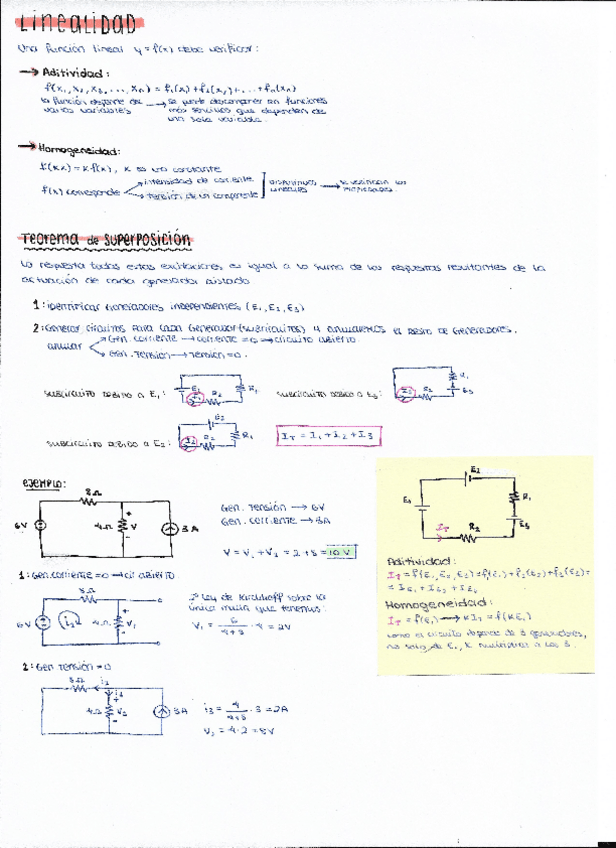 LINEALIDAD
Una función lineal y = f(x) debe verificar:
→ Aditividad:
f(x₁, x₂, x₃, ..., xₙ) = f₁(x₁) + f₂(x₂) + ... + fₙ(xₙ)
la función depende de varias variables → se puede descomponer en funciones más sencillas que dependen de una sola variable.
→ Homogeneidad:
f(Kx) = K·f(x), K es una constante
f(x) corresponde
intensidad de corriente
tensión de un componente
→ K
TEOREMA DE SUPERPOSICIÓN
La respuesta todas estas excitaciones es igual a la suma de las respuestas resultantes de la
actuación de cada generador aislado
1: Identificar Generadores independientes (E₁, E₂, E₃)
2: Generar circuitos para cada Generador (subcircuitos) y anularemos el resto de Generadores.
anular
Gen. corriente → corriente = 0 → circuito abierto.
Gen. Tensión → Tensión = 0.
subcircuito debido a E₁:
E₁
R₁
R₂
subcircuito debido a E₃:
R₁
R₂
E₃
subcircuito debido a E₂:
E₂
R₁
R₂
I_T = I₁ + I₂ + I₃
EJEMPLO:
3Ω
6V
4Ω
V
3A
Gen. Tensión → 6V
Gen. corriente → 3A
V = V₁ + V₂ = 2 + 8 = 10 V
1: Gen. corriente = 0 → cir. abierto
3Ω
6V
4Ω
V₁
2ª Ley de Kirchhoff sobre la
única malla que tenemos:
V₁ = 6/(4+8) · 4 = 2V
2: Gen Tensión = 0
i₂
i₃
4Ω
V₂
3A
i₃ = 4/(4+8) · 3 = 2A
V₂ = 4·2 = 8V
E₂
E₁
R₁
E₃
I_T
R₂
Aditividad:
I_T = f(E₁, E₂, E₃) = f₁(E₁) + f₂(E₂) + f₃(E₃) =
Homogeneidad:
I_T = f(E₁) → K I_T = f(KE₁)
como el circuito depende de 3 generadores,
no solo de E₁, K multiplica a los 3.